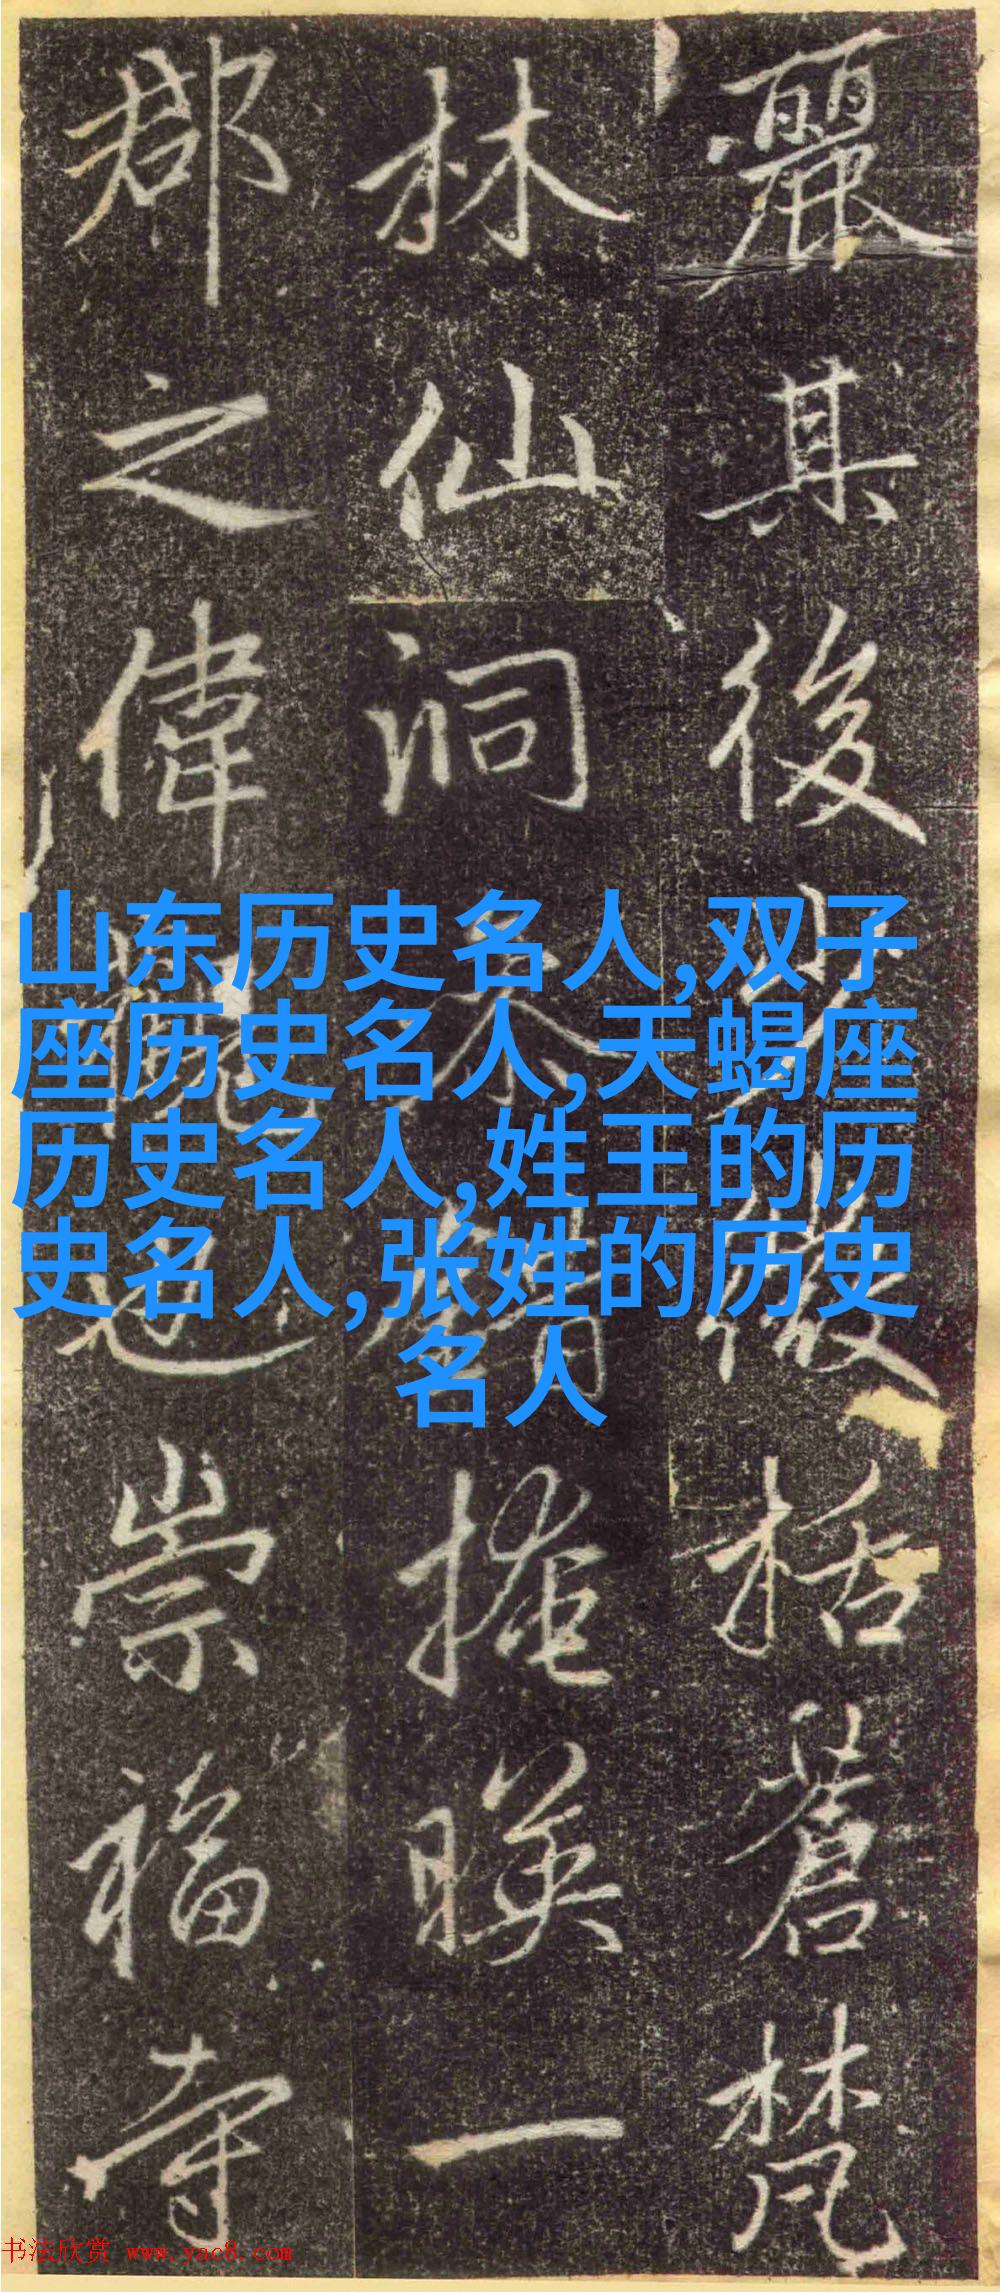 麗其後括蒼梵
林仙洞掩暎一
郡之偉觀也崇福寺
山东历史名人,双子
座历史名人,天蝎座
历史名人,姓王的历
史名人,张姓的历史
名人
书法欣赏 www.yac8.com